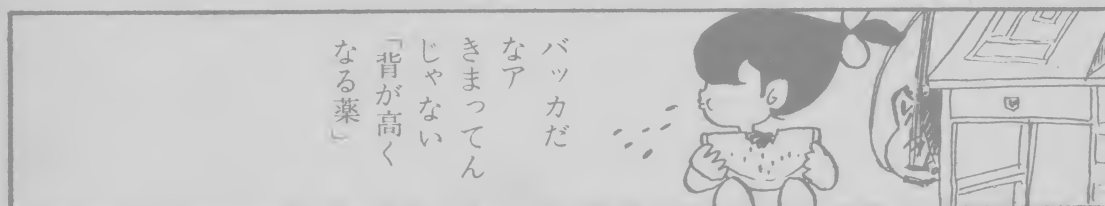 バッカだ
なア
きまってん
じゃない
「背が高く
なる薬」